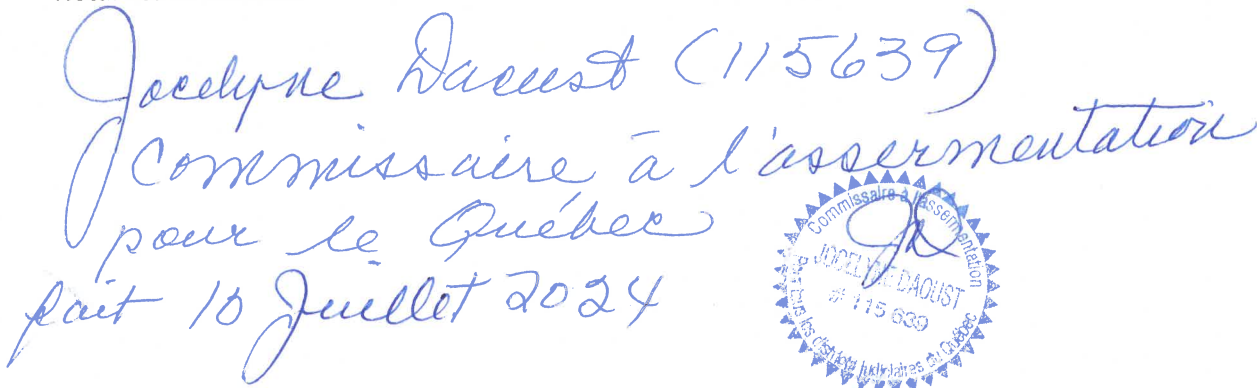 Jocelyne Daoust (115639)
Commissaire à l'assermentation
pour le Québec
fait 10 Juillet 2024
Commissaire à l'assermentation
JOCELYNE DAOUST
# 115 639
pour tous les districts judiciaires du Québec
JD